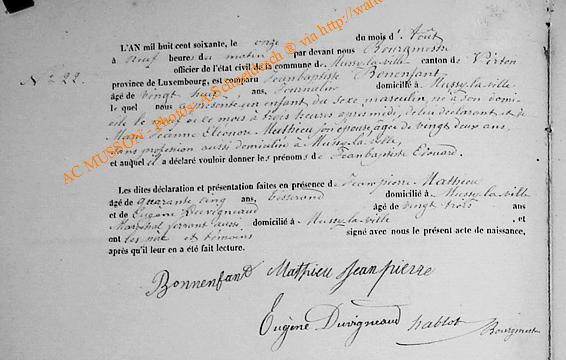 L'AN mil huit cent soixante, le onze du mois d'Août
à neuf heures du matin par devant nous Bourgmestre
officier de l'état civil de la commune de Mussy-la-ville canton de Virton
N° 22. province de Luxembourg, est comparu Jeanbaptiste Bonenfant
âgé de vingt huit ans, Journalier domicilié à Mussy-la-ville
le quel nous a présenté un enfant du sexe masculin, né à son domi-
cile le ce mois à trois heures après midi, de lui déclarant et de
Marie Jeanne Eleonore Mathieu son épouse, age de vingt deux ans,
sans profession aussi domicilié à Mussy-la-ville,
et auquel il a déclaré vouloir donner les prénoms de Jeanbaptiste Edouard.
Les dites déclaration et présentation faites en présence de Jeanpierre Mathieu
âgé de quarante cinq ans, domicilié à Mussy-la-ville
et de Eugène Duvigneaud âgé de vingt trois ans
Maréchal ferrant aussi domicilié à Mussy-la-ville , et
ont les père et témoins signé avec nous le présent acte de naissance,
après qu'il leur en a été fait lecture.
Bonnenfant Mathieu Jeanpierre
Eugène Duvigneaud hablot Bourgmestre
AC MUSSON - Photos A. Schleich ® via http://wal